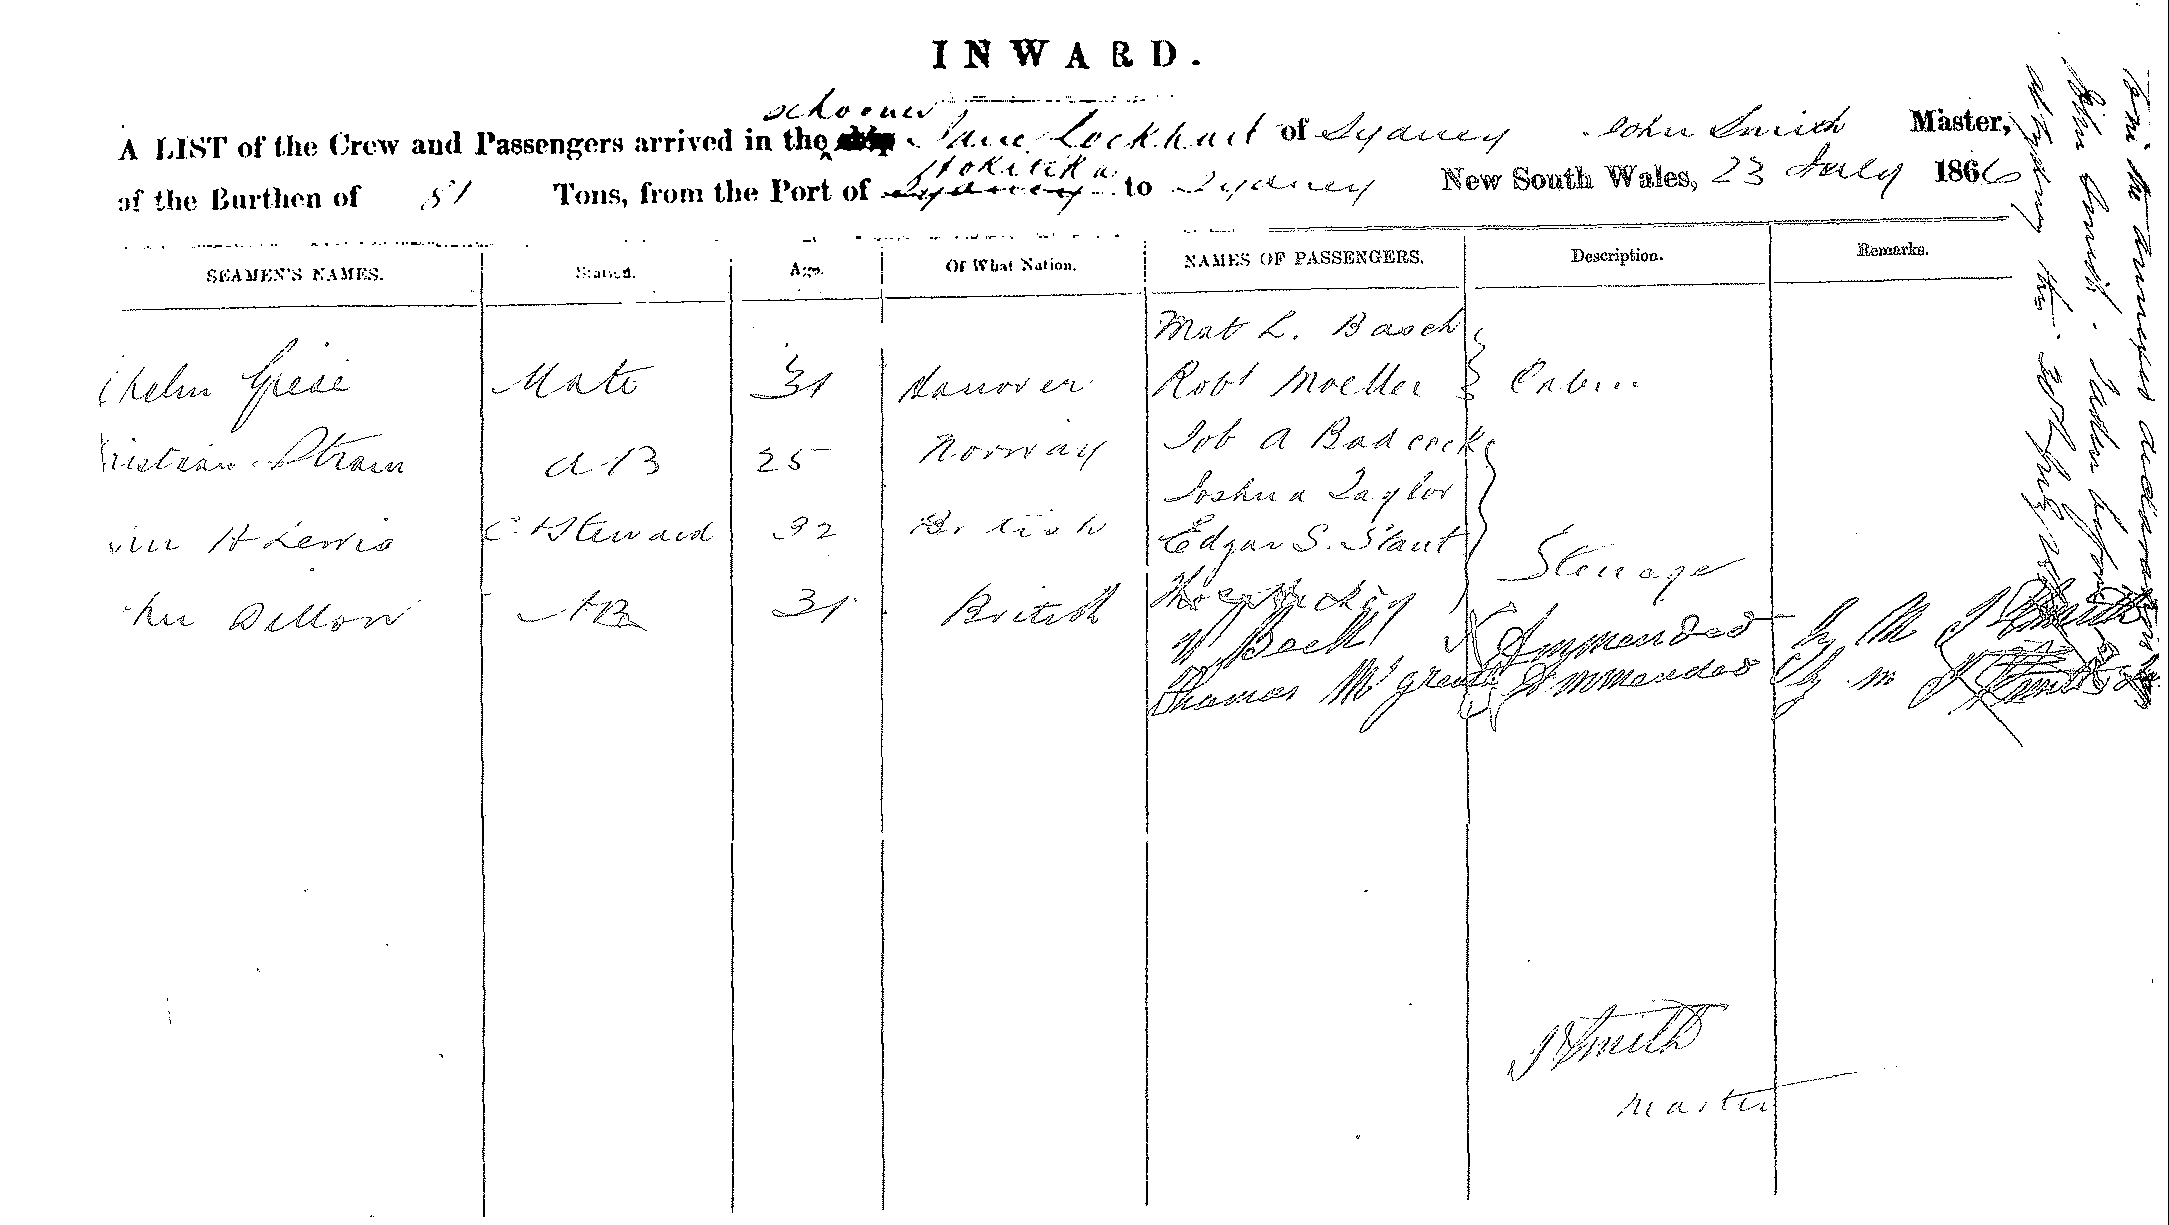 INWARD.
schooner
A LIST of the Crew and Passengers arrived in the ship Jane Lockhart of Sydney John Smith Master,
Hokitika
of the Burthen of 81 Tons, from the Port of Sydney to Sydney New South Wales, 23 July 1866
SEAMEN'S NAMES. Station. Age. Of What Nation. NAMES OF PASSENGERS. Description. Remarks.
Mat L. Basch
helm Giese Mate 31 Hanover Robt Moeller Cabin
Job A Badcock
ristian Strom A B 25 Norway
Joshua Taylor
H Lewis C. & Steward 32 British Edgar S. Staut
Steerage
Dillon AB 31 British
W Beck Ammended by M J Smith
Thomas Mc Ammended by M J Smith
J Smith
master
John
Sydney this July